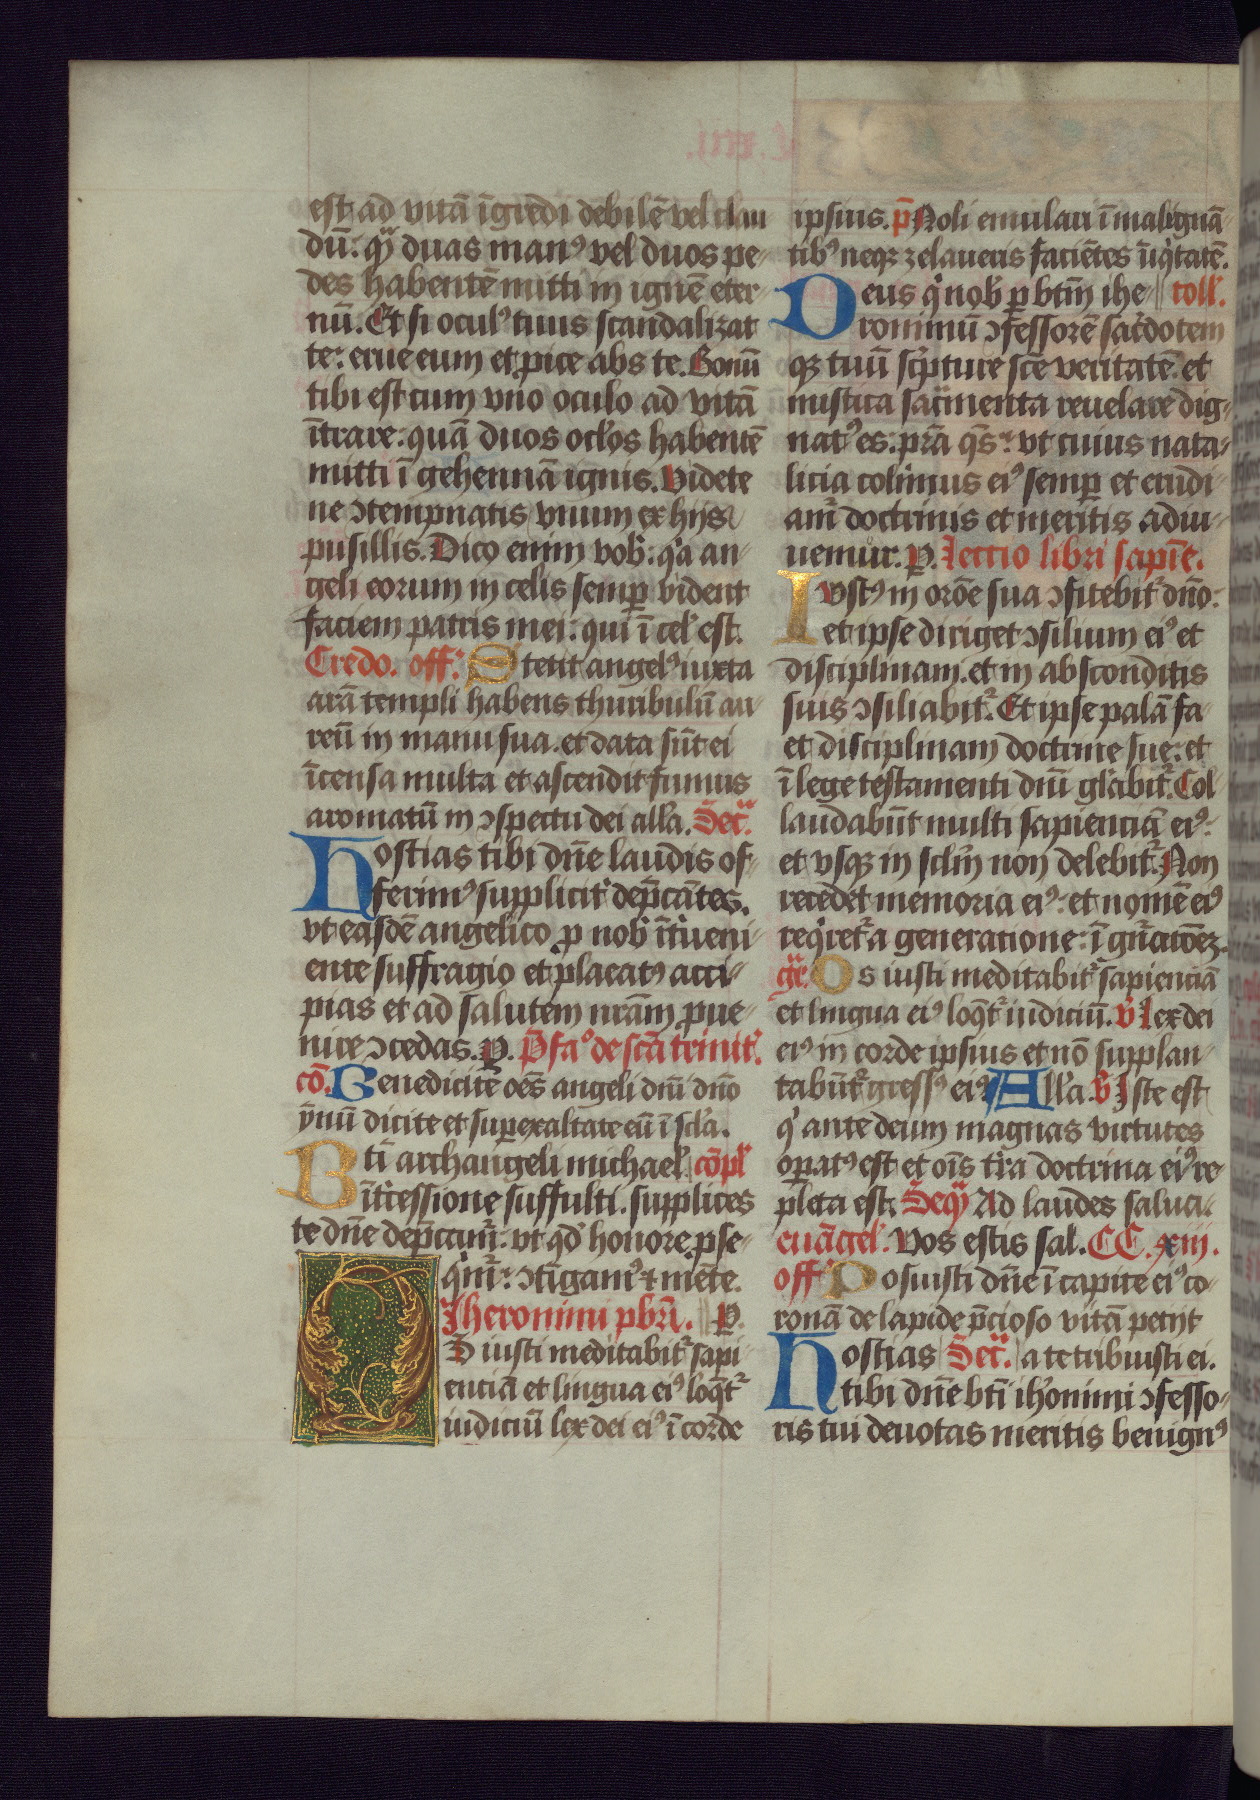 est ad vitā īgredi debilē vel clau
dū: qͣ duas manꝰ vel duos pe-
des habentē mitti in ignē eter-
nū. Et si oculꝰ tuus scandalizat
te: erue eum et ꝓice abs te. Bonū
tibi est cum vno oculo ad vitā
ītrare: quā duos oclos habentē
mitti ī gehennā ignis. Videte
ne ↄtempnatis vnum ex hijs
pusillis. Dico enim vob̛: q̛a an-
geli eorum in celis semꝑ vident
faciem patris mei: qui ī cel̛ est.
Credo. off̛. Stetit angelꝰ iuxta
arā templi habens thuribulū au-
reū in manu sua. et data sūt ei
īcensa multa et ascendit fumus
aromatū in ↄspectu dei all̛a. Secͣ.
Hostias tibi dn̄e laudis of-
ferimꝰ supplicit̛ dep̄cātes.
vt easdē angelico ꝓ nob̛ īt̛ueni-
ente suffragio et placatꝰ acci-
pias et ad salutem nr̄am ꝓue-
nire ↄcedas. P. P̄faᵒ de scā trinit̛.
cō. Benedicite oēs angeli dn̄i dn̄o
ymnū dicite et suꝑexaltate eū ī scl̛a.
Bt̄i archangeli michael̛ cōpl̛
īt̛cessione suffulti. supplices
te dn̄e dep̄cam̛: vt qd̛ honore ꝓse-
q̛m̛: ↄtīgamꝰ ⁊ mēte.
Jheronimi pbr̄i. P.
OS iusti meditabit̛ sapi-
entiā et lingua eiꝰ loqt̛
iudiciū lex dei eiꝰ ī corde
ipsius. p̄ Noli emulari ī malignā-
tibꝰ neqꝫ zelaueris faciētes īiq̛tatē.
Deus q̛ nob̛ ꝑ bt̄m ihe- coll̛.
ronimū ↄfessorē sac̛dotem
qꝫ tuū sc̛pture scē veritatē et
mistica sac̛menta reuelare dig-
natꝰ es: pr̄a qs̄: vt cuius nata-
licia colimus eiꝰ semꝑ et erudi-
am̛ doctrinis et meritis adiu-
uemur. P. Lectio libri sapīe.
Iustꝰ in orōe sua ↄfitebit̛ dn̄o:
et ipse diriget ↄsilium eiꝰ et
disciplinam. et in absconditis
suis ↄsiliabit̛. Et ipse palā fa-
et disciplinam doctrine sue: et
ī lege testamenti dn̄i gl̛abit̛. Col-
laudabūt multi sapienciā eiꝰ:
et vsqꝫ in scl̛m non delebit̛. Non
recedet memoria eiꝰ: et nomē eiꝰ
req̛ret̛ a generatione: ī gn̄acōeꝫ.
gͣ. Os iusti meditabit̛ sapienciā
et lingua eiꝰ loqt̛ iudiciū. v̛ Lex dei
eiꝰ in corde ipsius et nō supplan-
tabūt̛ gressꝰ eiꝰ. All̛a. v̛ Iste est
q̛ ante deum magnas virtutes
oꝑatꝰ est et oīs tr̛a doctrina eiꝰ re-
pleta est. Seqͣ Ad laudes salua-
euāgel̛. Vos estis sal. CC. xiij.
off̛ Posuisti dn̄e ī capite eiꝰ co-
ronā de lapide p̄cioso vitā petijt
Hostias Secͣ. a te tribuisti ei.
tibi dn̄e bt̄i ih̛onimi ↄfesso-
ris tui deuotas meritis benignꝰ